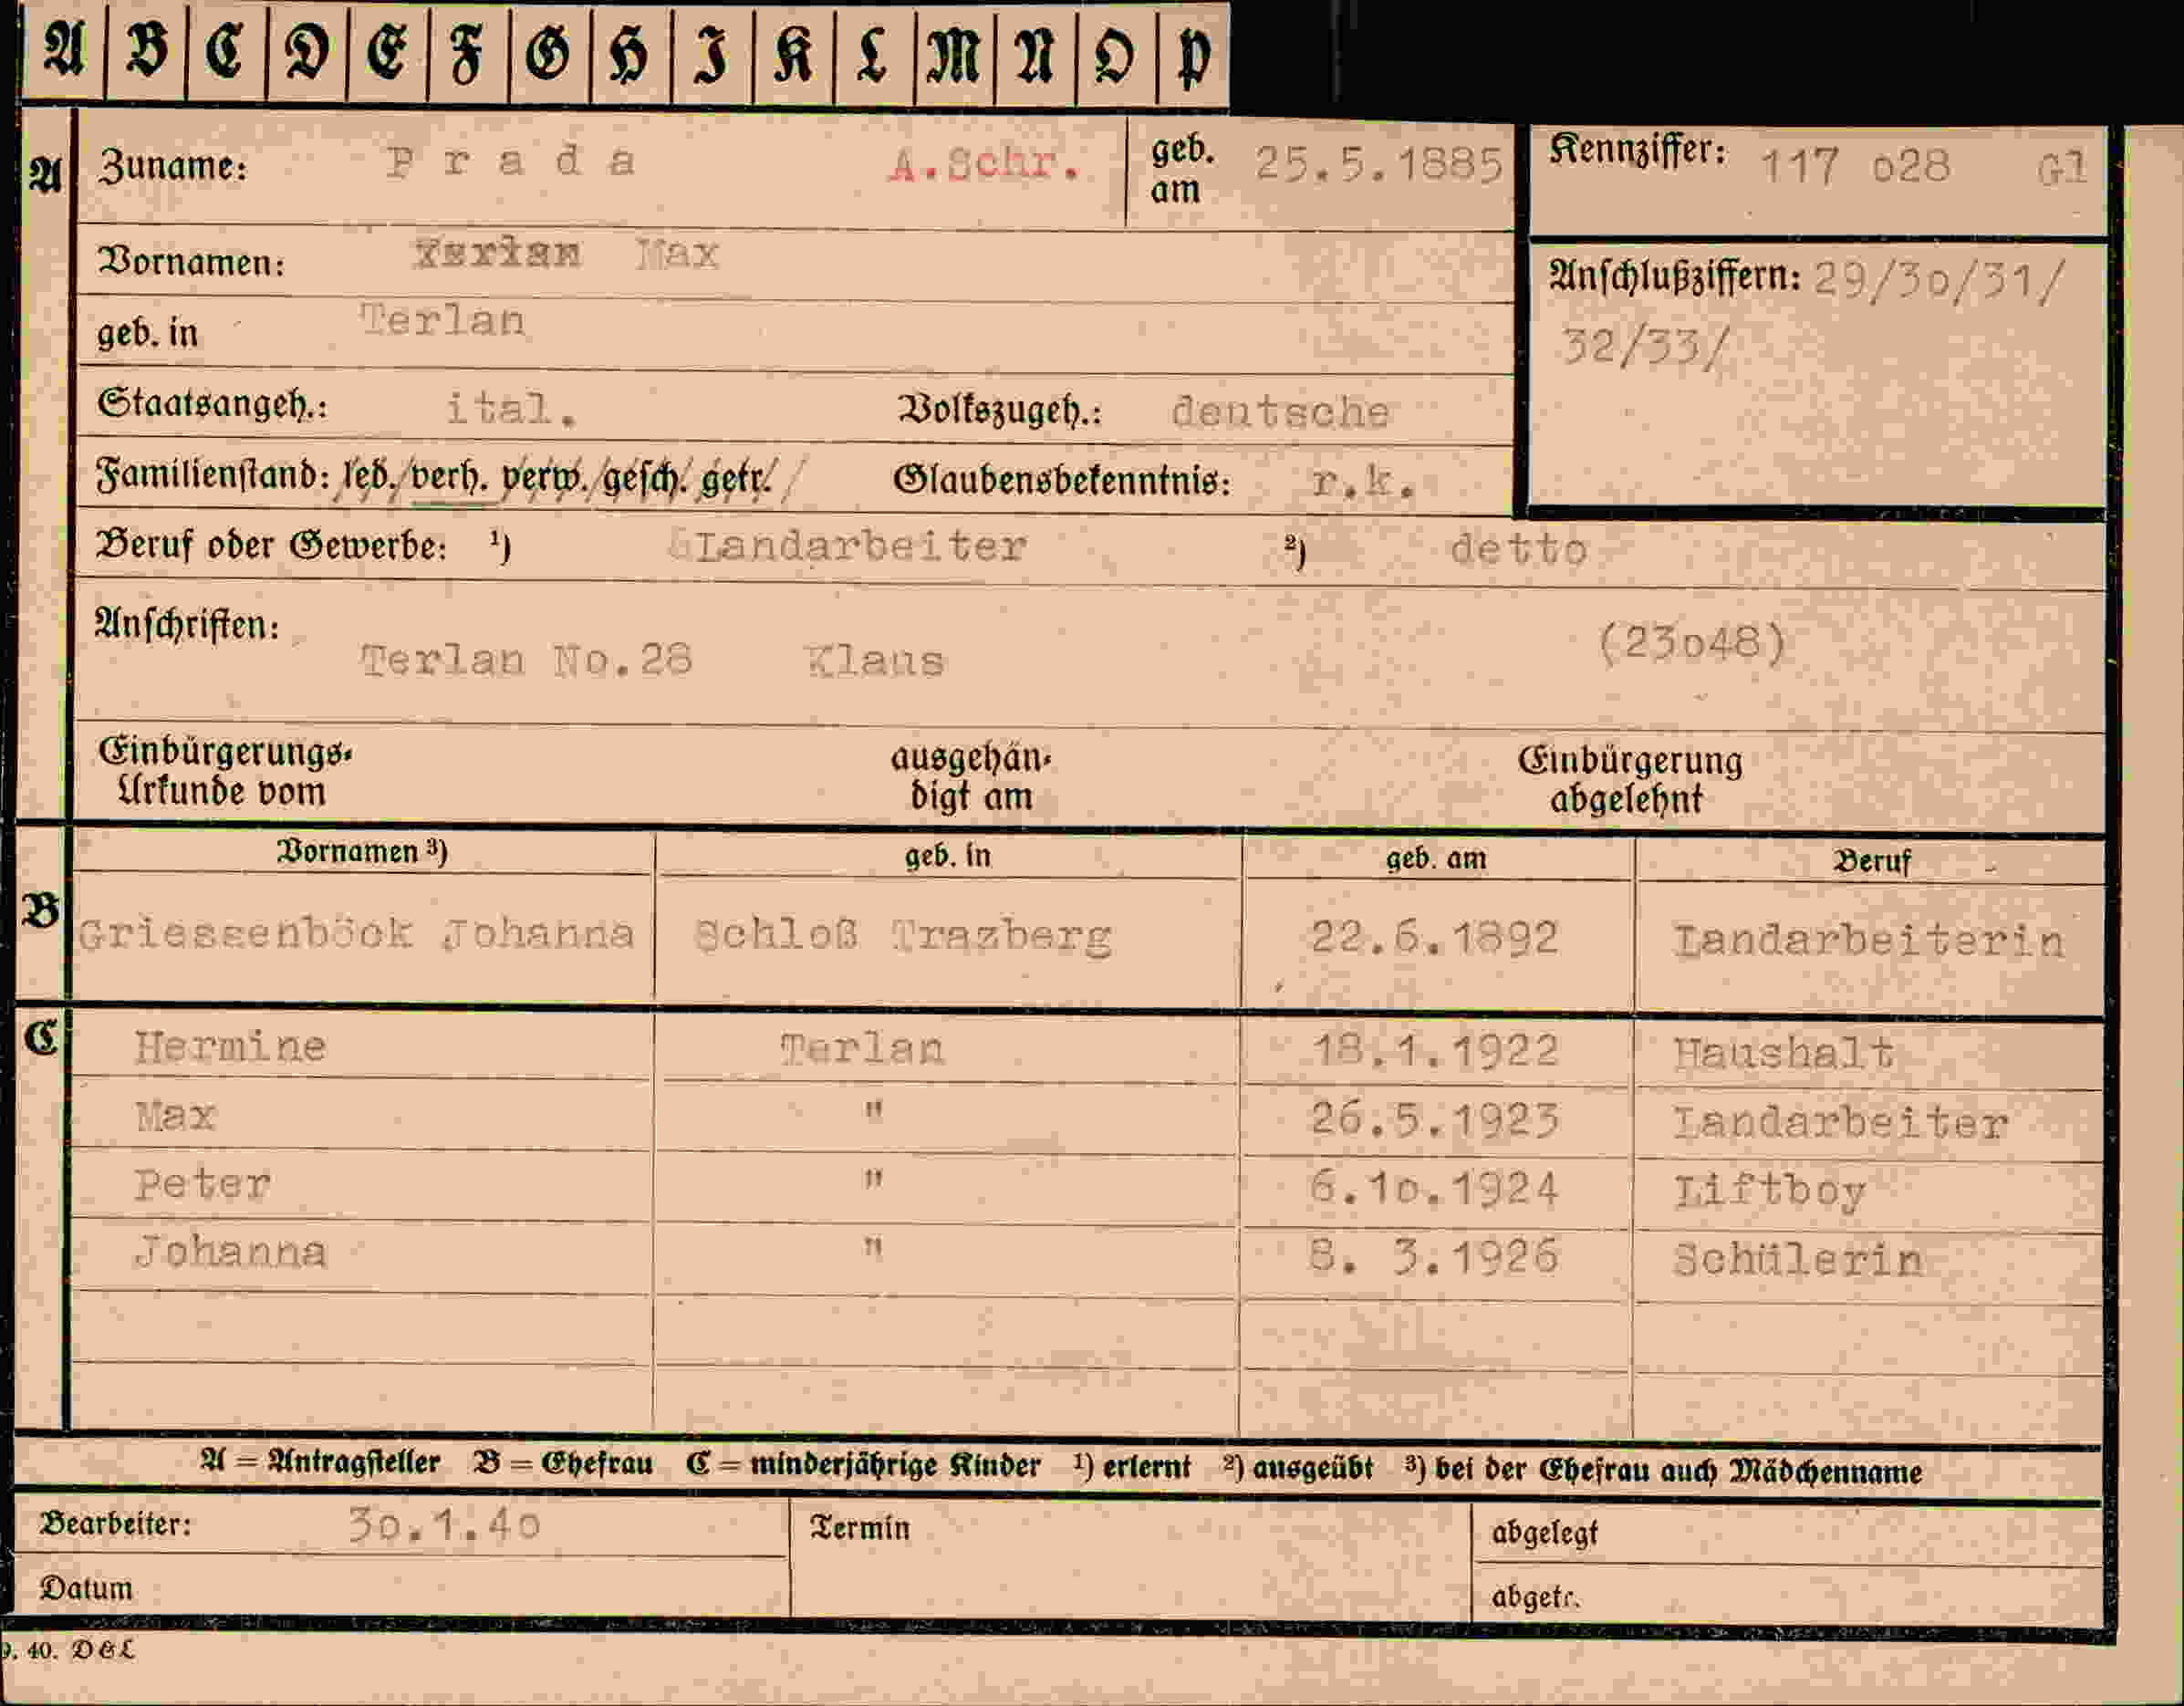 A B C D E F G H I K L M N O P
A Zuname: Prada A.Schr. geb. am 25.5.1885 Kennziffer: 117 o28 Gl
Vornamen: Max
Anschlußziffern: 29/3o/31/
32/33/
geb. in Terlan
Staatsangeh.: ital. Volkszugeh.: deutsche
Familienstand: led. verh. verw. gesch. getr. Glaubensbekenntnis: r.k.
Beruf oder Gewerbe: ¹) Landarbeiter ²) detto
Anschriften: Terlan No.28 Klaus (23o48)
Einbürgerungs- ausgehän- Einbürgerung
Urkunde vom digt am abgelehnt
Vornamen ³) geb. in geb. am Beruf
B Griessenböck Johanna Schloß Trazberg 22.6.1892 Landarbeiterin
C Hermine Terlan 18.1.1922 Haushalt
Max " 26.5.1923 Landarbeiter
Peter " 6.1o.1924 Liftboy
Johanna " 8. 3.1926 Schülerin
A = Antragsteller B = Ehefrau C = minderjährige Kinder ¹) erlernt ²) ausgeübt ³) bei der Ehefrau auch Mädchenname
Bearbeiter: 3o.1.4o Termin abgelegt
Datum abgetr.
9. 40. D&L